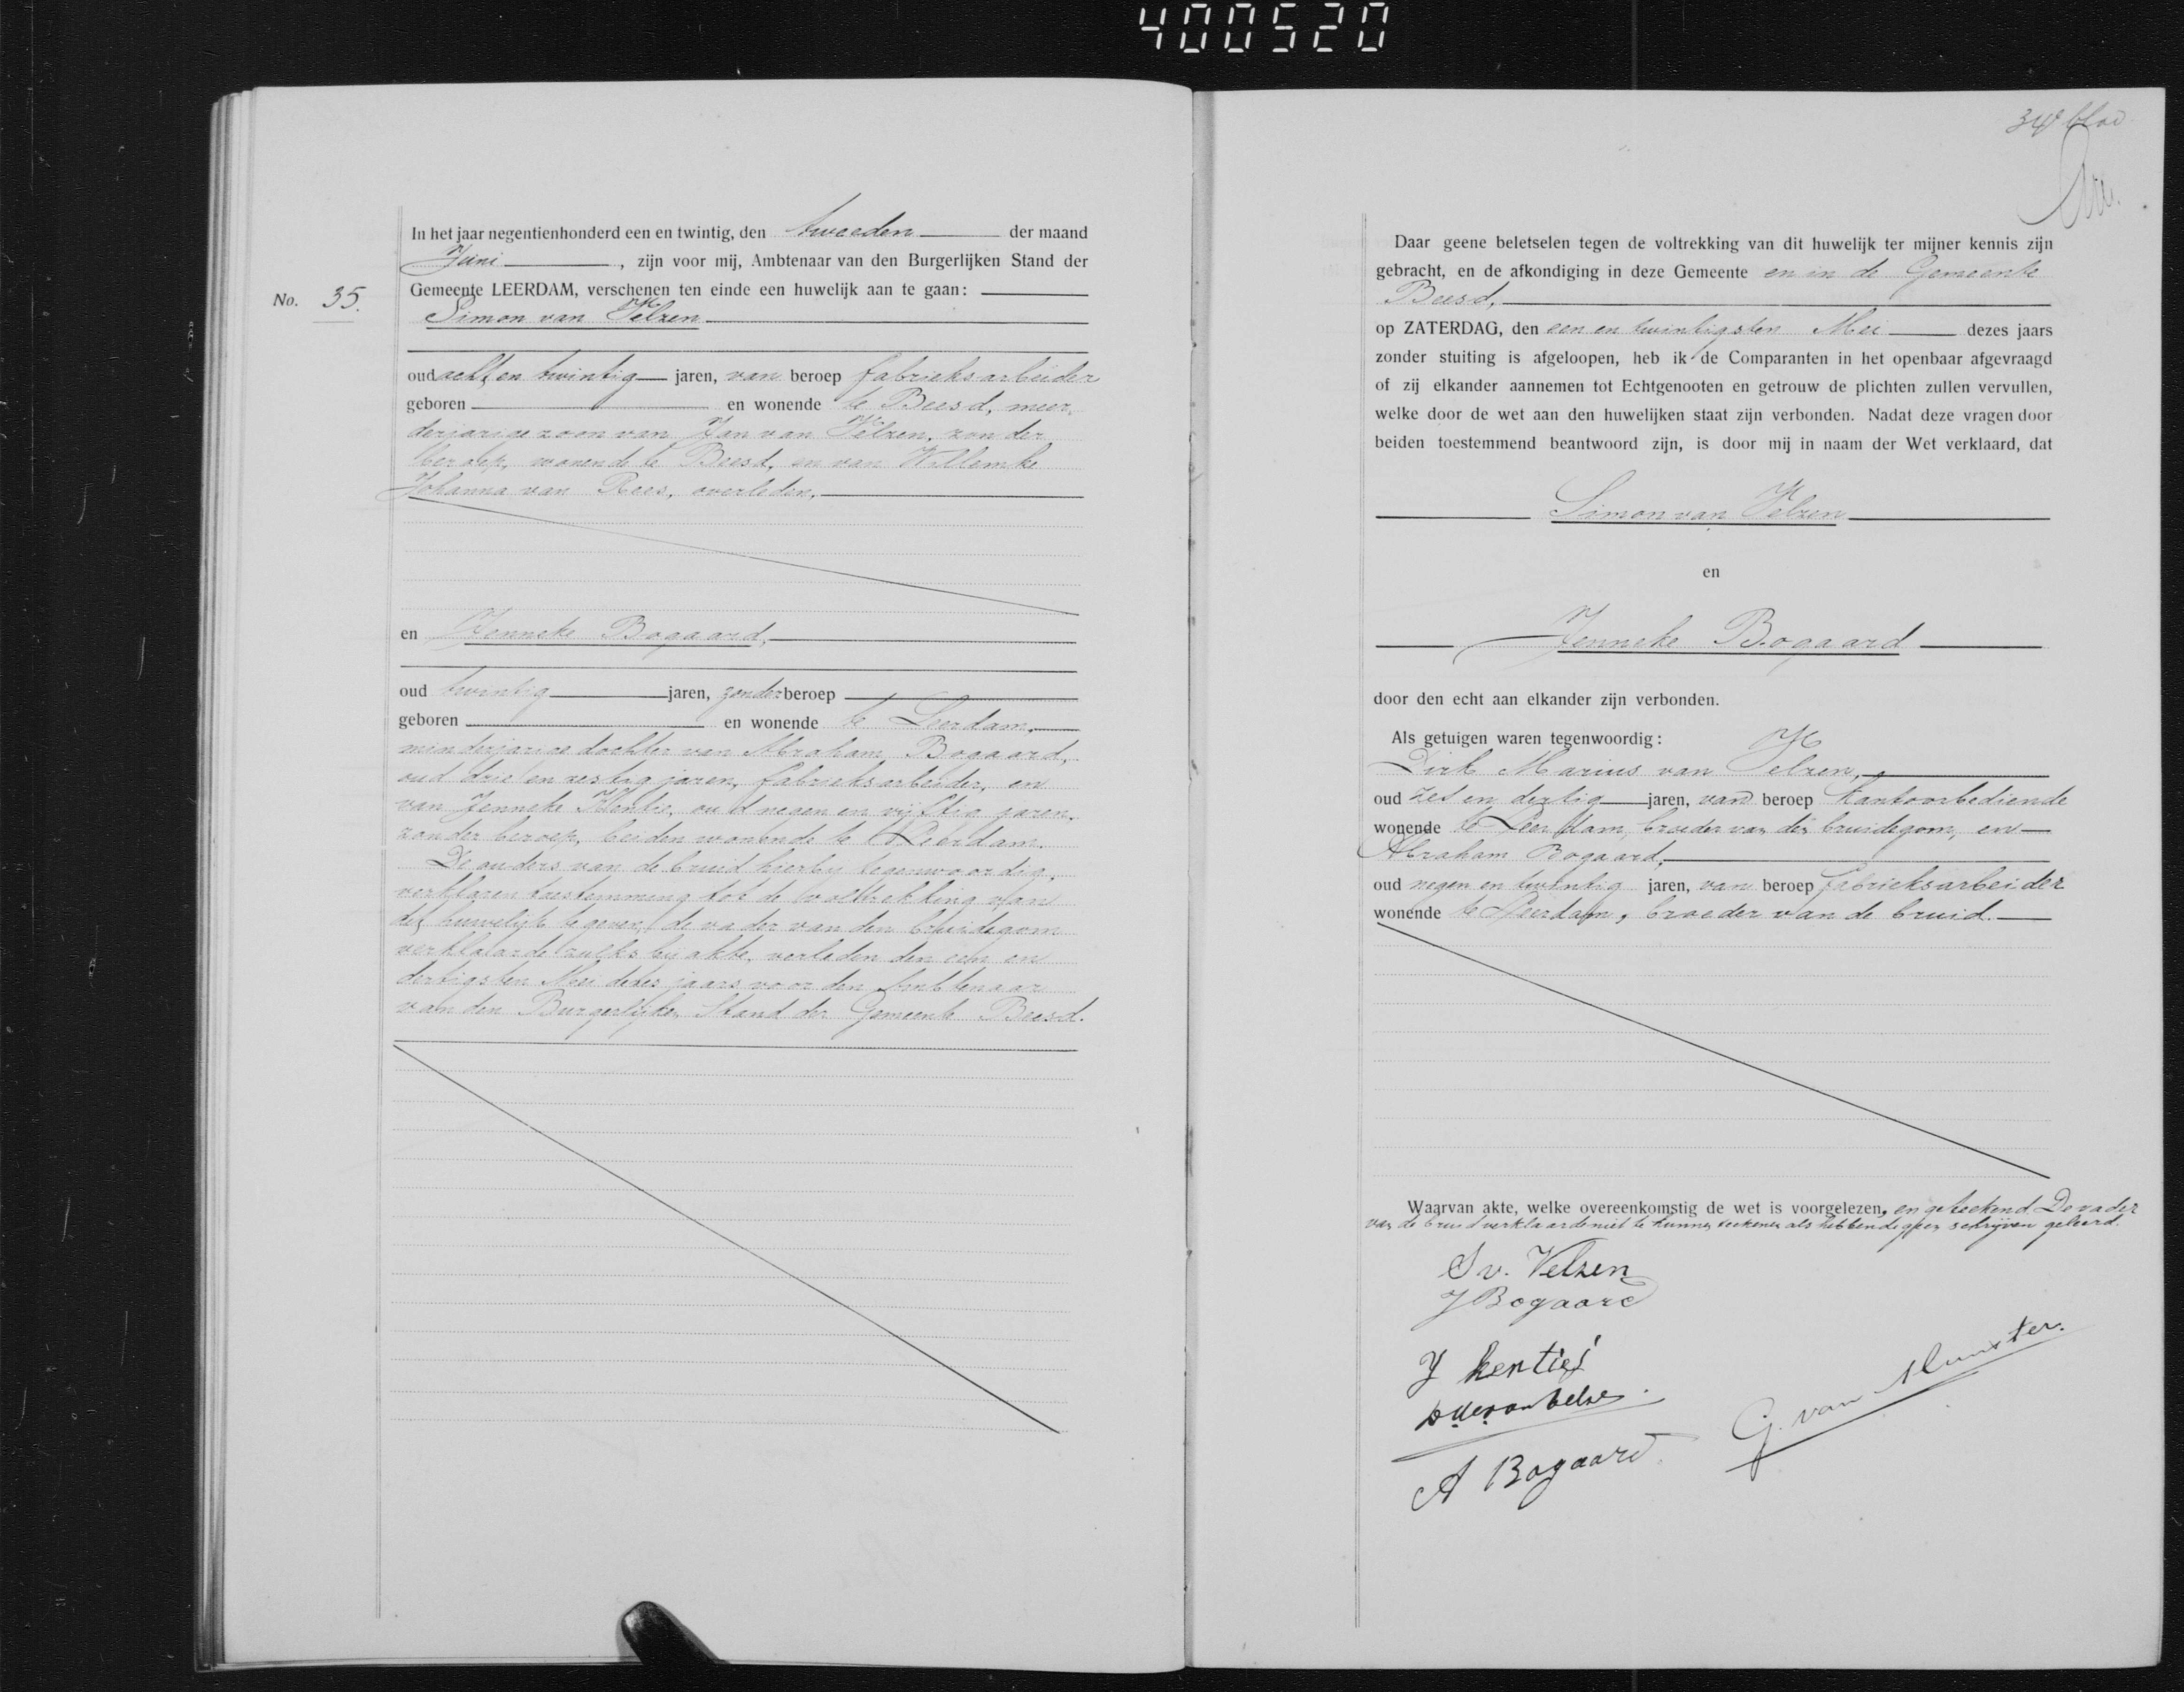 400520
In het jaar negentienhonderd een en twintig, den tweeden der maand
Juni, zijn voor mij, Ambtenaar van den Burgerlijken Stand der
No. 35.
Gemeente LEERDAM, verschenen ten einde een huwelijk aan te gaan:
Simon van Velzen
oud acht en twintig jaren, van beroep fabrieksarbeider
geboren en wonende te Beesd, meer-
derjarige zoon van Jan van Velzen, zonder
beroep, wonende te Beesd, en van Willemke
Johanna van Rees, overleden.
en Jenneke Bogaard,
oud twintig jaren, zonder beroep
geboren en wonende te Leerdam,
minderjarige dochter van Abraham Bogaard,
oud drie en zestig jaren, fabrieksarbeider, en
van Jenneke Kentie, oud negen en vijftig jaren,
zonder beroep, beiden wonende te Leerdam.
De ouders van de bruid hierby tegenwoordig,
verklaren toestemming tot de voltrekking van
dit huwelijk te geven, de vader van den bruidegom
verklaarde zulks bij akte, verleden den een en
dertigsten Mei dezes jaars voor den Ambtenaar
van den Burgerlijken Stand der Gemeente Beesd.
34e blad
Daar geene beletselen tegen de voltrekking van dit huwelijk ter mijner kennis zijn
gebracht, en de afkondiging in deze Gemeente en in de Gemeente
Beesd,
op ZATERDAG, den een en twintigsten Mei dezes jaars
zonder stuiting is afgeloopen, heb ik de Comparanten in het openbaar afgevraagd
of zij elkander aannemen tot Echtgenooten en getrouw de plichten zullen vervullen,
welke door de wet aan den huwelijken staat zijn verbonden. Nadat deze vragen door
beiden toestemmend beantwoord zijn, is door mij in naam der Wet verklaard, dat
Simon van Velzen
en
Jenneke Bogaard
door den echt aan elkander zijn verbonden.
Als getuigen waren tegenwoordig:
Dirk Marius van Velzen,
oud zes en dertig jaren, van beroep kantoorbediende
wonende te Leerdam, broeder van den bruidegom, en
Abraham Bogaard,
oud negen en twintig jaren, van beroep fabrieksarbeider
wonende te Leerdam, broeder van de bruid.
Waarvan akte, welke overeenkomstig de wet is voorgelezen, en geteekend. De vader
van de bruid verklaarde niet te kunnen teekenen als hebbende geen schrijven geleerd.
S v. Velzen
J Bogaard
J kenties
D M van Velzen
G. van Munster.
A Bogaard